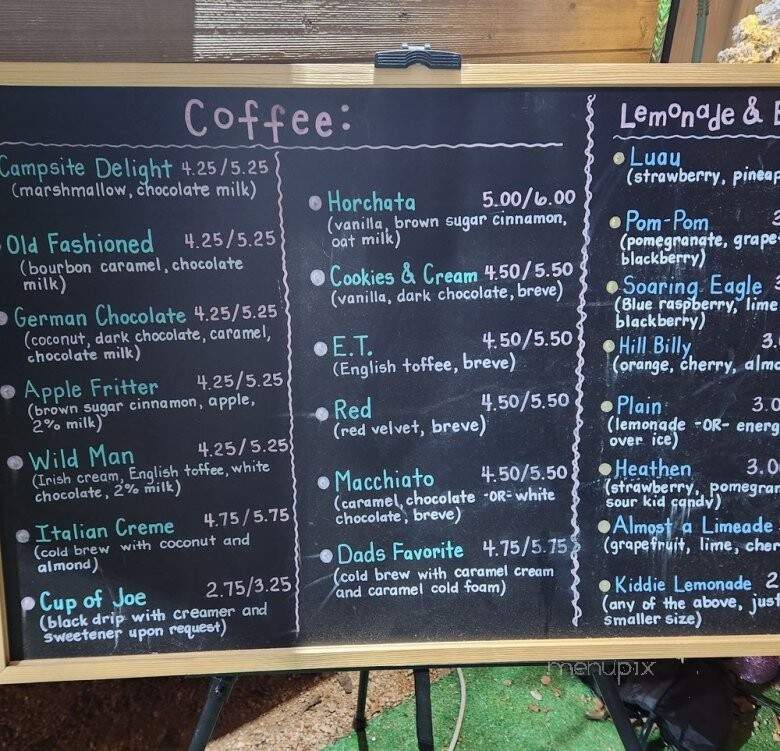 Coffee:
Campsite Delight 4.25/5.25
(marshmallow, chocolate milk)
Old Fashioned 4.25/5.25
(bourbon caramel, chocolate
milk)
German Chocolate 4.25/5.25
(coconut, dark chocolate, caramel,
chocolate milk)
Apple Fritter 4.25/5.25
(brown sugar cinnamon, apple,
2% milk)
Wild Man 4.25/5.25
(Irish cream, English toffee, white
chocolate, 2% milk)
Italian Creme 4.75/5.75
(cold brew with coconut and
almond)
Cup of Joe 2.75/3.25
(black drip with creamer and
sweetener upon request)
Horchata 5.00/6.00
(vanilla, brown sugar cinnamon,
oat milk)
Cookies & Cream 4.50/5.50
(vanilla, dark chocolate, breve)
E.T. 4.50/5.50
(English toffee, breve)
Red 4.50/5.50
(red velvet, breve)
Macchiato 4.50/5.50
(caramel, chocolate -OR- white
chocolate, breve)
Dads Favorite 4.75/5.75
(cold brew with caramel cream
and caramel cold foam)
Lemonade &
Luau
(strawberry,
Pom-Pom
(pomegranate,
blackberry)
Soaring Eagle
(Blue raspberry, lime
blackberry)
Hill Billy 3.
(orange, cherry,
Plain 3.0
(lemonade -OR-
over ice)
Heathen 3.0
(strawberry,
sour kid candy)
Almost a Limeade
(grapefruit, lime,
Kiddie Lemonade 2
(any of the above, just
smaller size)
menupix